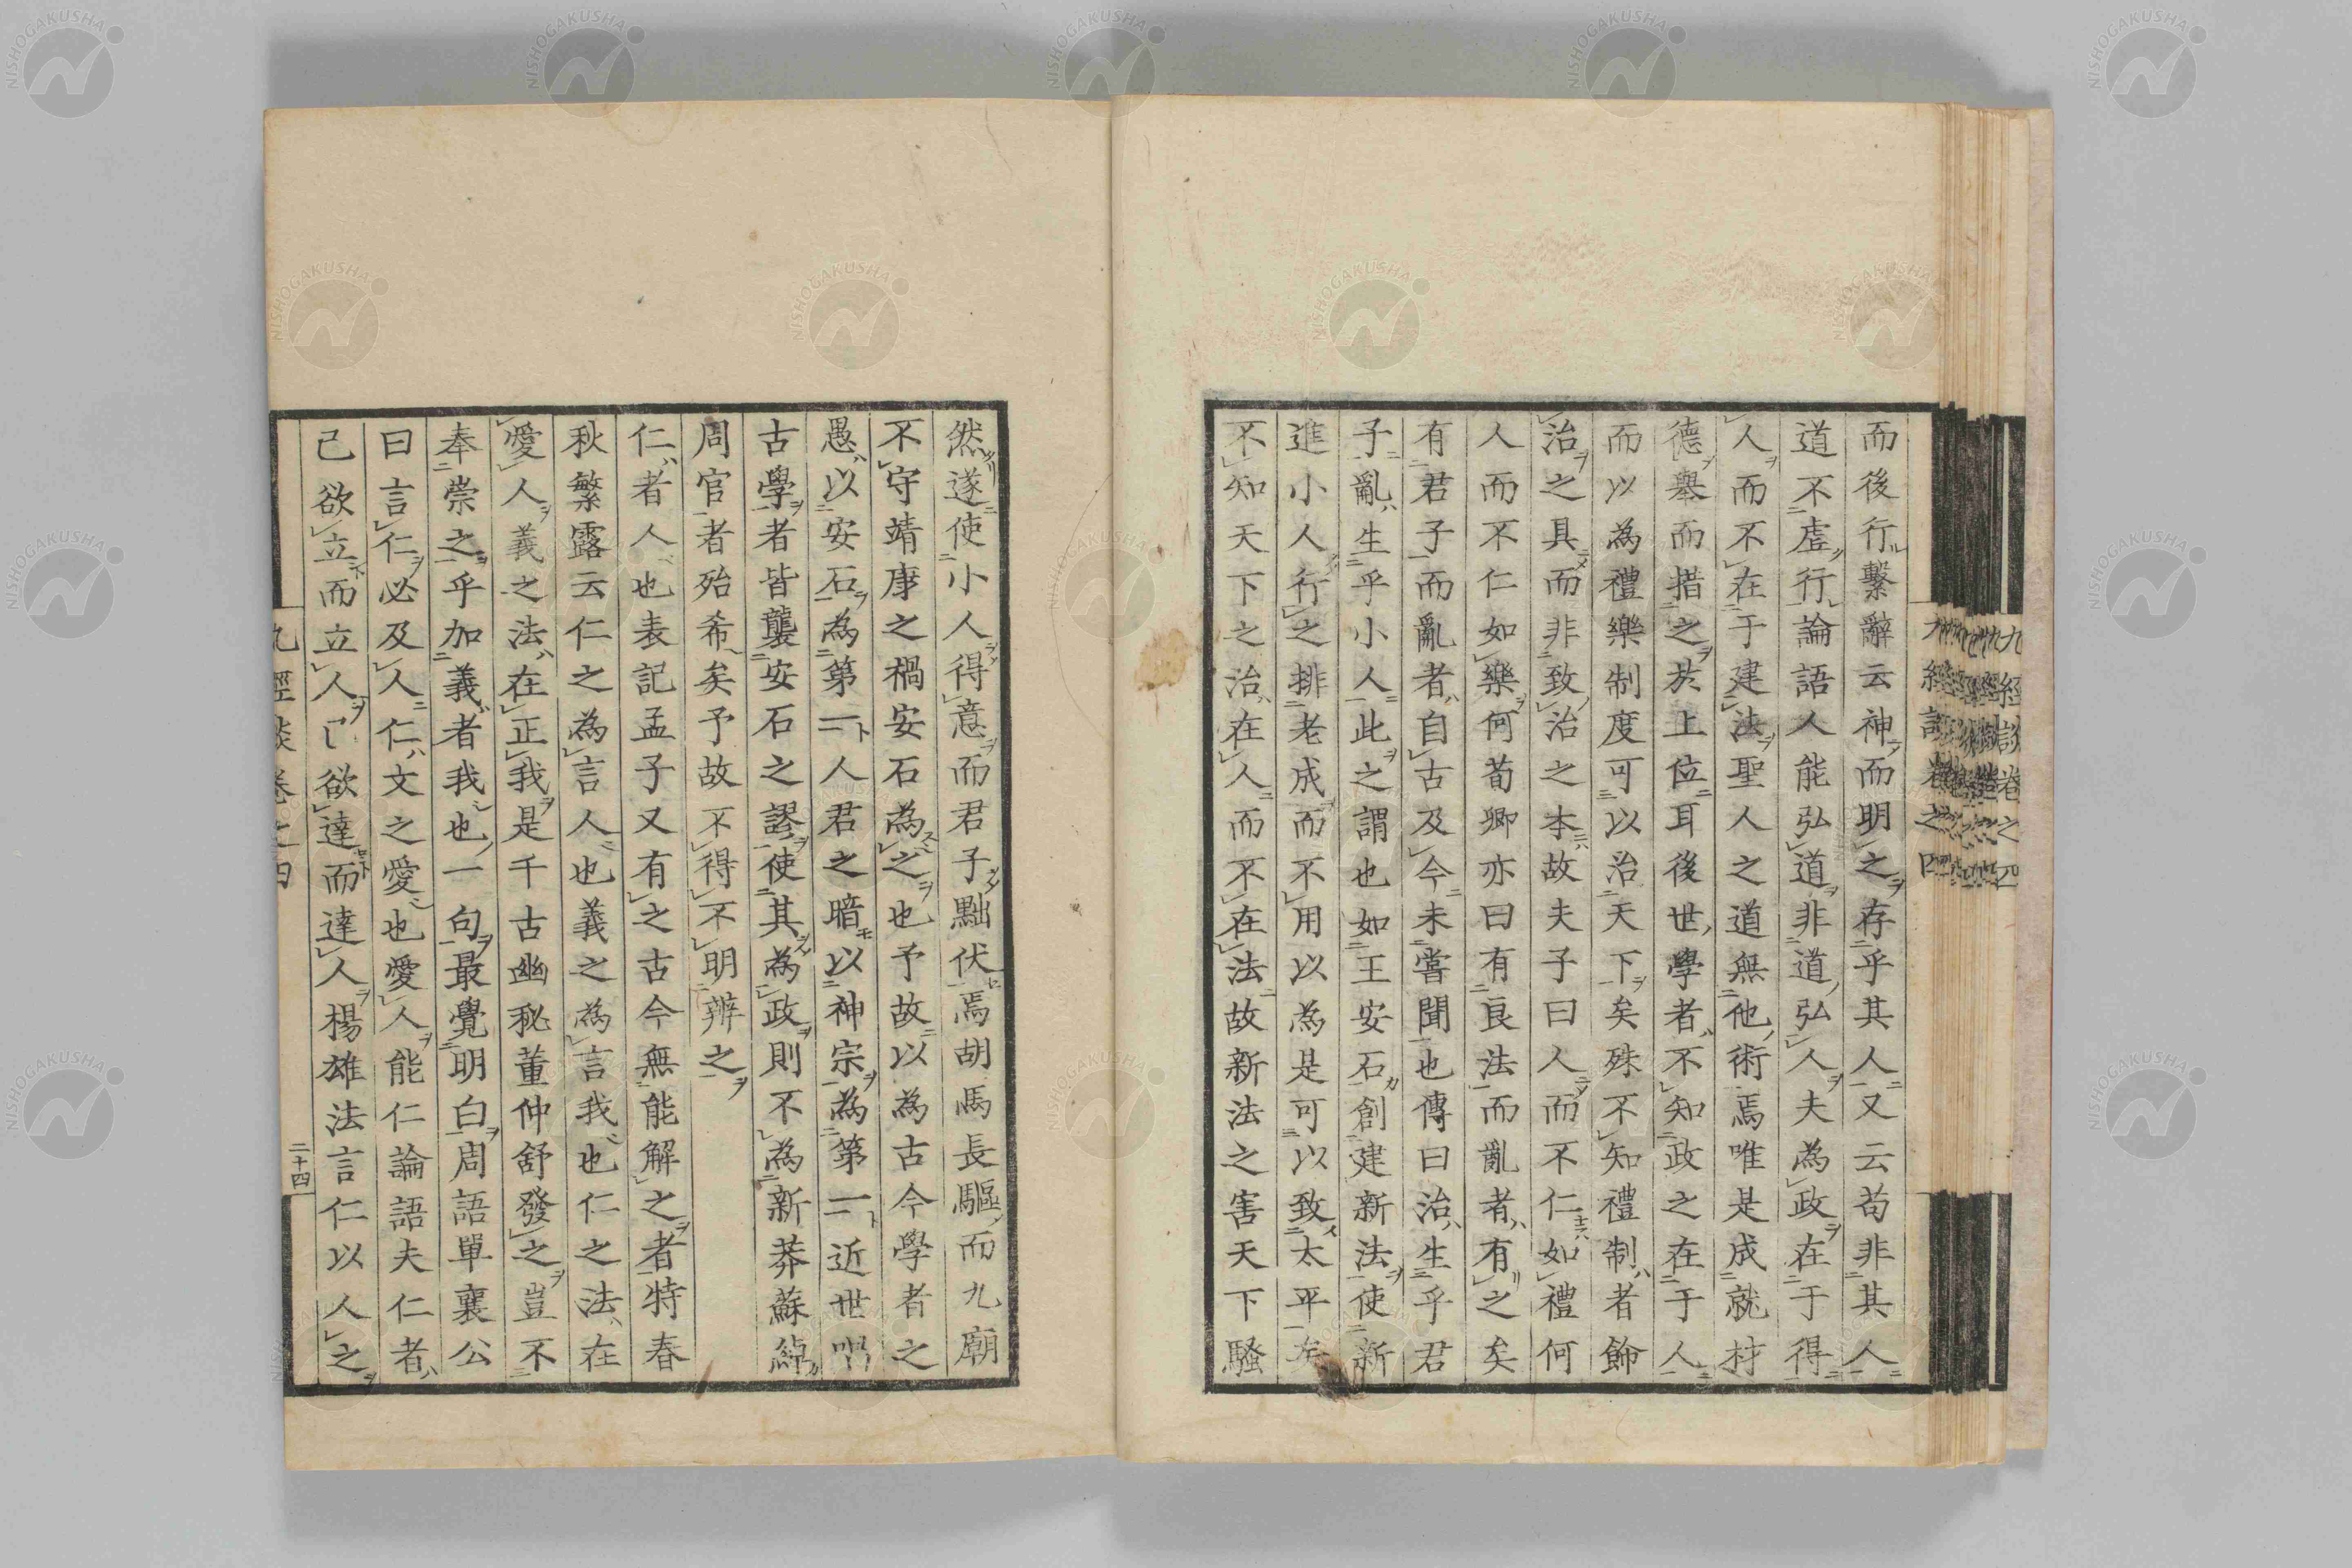 而後行繫辭云神而明之存乎其人又云苟非其人
道不虛行論語人能弘道非道弘人夫為政在于得
人而不在于建法聖人之道無他術焉唯是成就材
德舉而措之於上位耳後世學者不知政之在于人
而以為禮樂制度可以治天下矣殊不知禮制者飾
治之具而非致治之本故夫子曰人而不仁如禮何
人而不仁如樂何荀卿亦曰有良法而亂者有之矣
有君子而亂者自古及今未嘗聞也傳曰治生乎君
子亂生乎小人此之謂也如王安石創建新法使新
進小人行之排老成而不用以為是可以致太平矣
不知天下之治在人而不在法故新法之害天下騷
然遂使小人得意而君子黜伏焉胡馬長驅而九廟
不守靖康之禍安石為之也予故以為古今學者之
愚以安石為第一人君之暗以神宗為第一近世唱
古學者皆襲安石之謬使其為政則不為新莽蘇綽
周官者殆希矣予故不得不明辨之
仁者人也表記孟子又有之古今無能解之者特春
秋繁露云仁之為言人也義之為言我也仁之法在
愛人義之法在正我是千古幽秘董仲舒發之豈不
奉崇之乎加義者我也一句最覺明白周語單襄公
曰言仁必及人仁文之愛也愛人能仁論語夫仁者
己欲立而立人己欲達而達人楊雄法言仁以人之
九經談卷之四
二十四